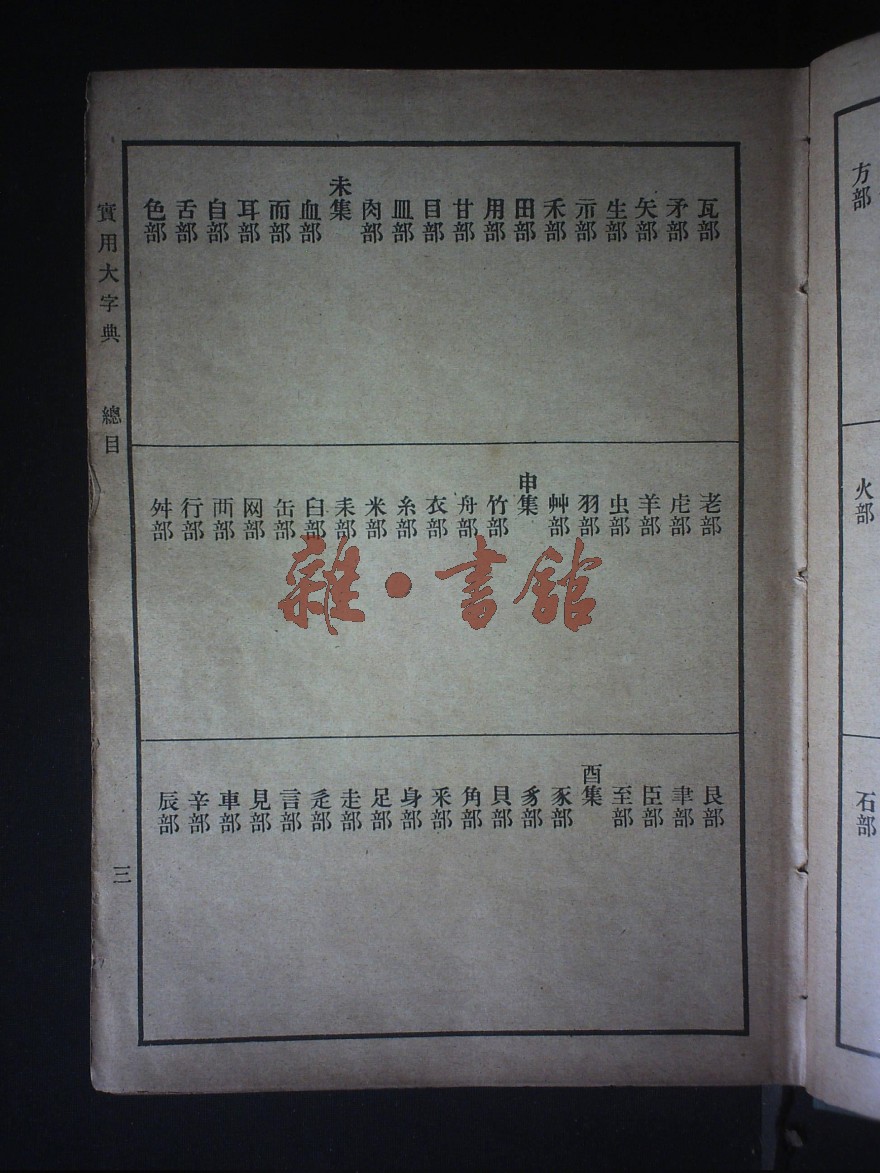 瓦部
矛部
矢部
生部
示部
禾部
田部
用部
甘部
目部
皿部
肉部
未集
血部
而部
耳部
自部
舌部
色部
老部
虍部
羊部
虫部
羽部
艸部
申集
竹部
舟部
衣部
糸部
米部
耒部
臼部
缶部
网部
襾部
行部
舛部
艮部
聿部
臣部
至部
酉集
豕部
豸部
貝部
角部
釆部
身部
足部
走部
辵部
言部
見部
車部
辛部
辰部
實用大字典 總目 三
方部
火部
石部
雜·書館